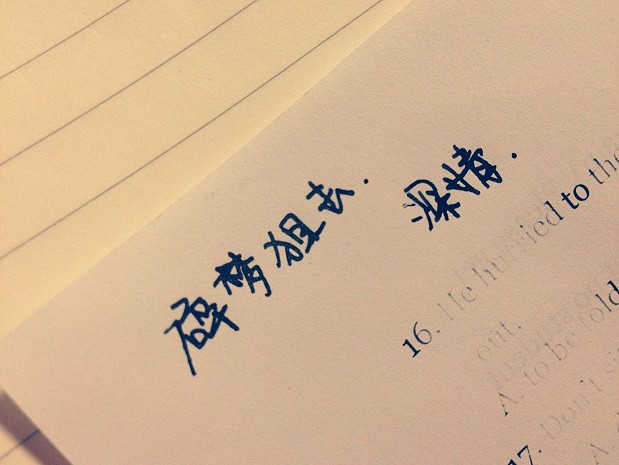 碎梦狙去.
深情.
16. He hurried to the
out.
A. to be told
17. Don't
A.